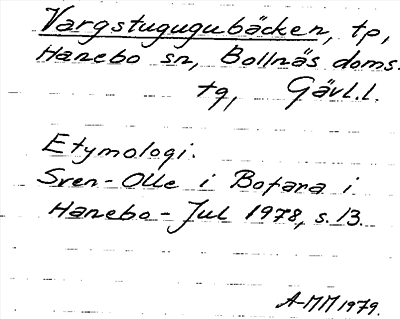 Vargstugugubäcken, tp,
Hanebo sn, Bollnäs doms.
tg, Gävl.l.
Etymologi.
Sven-Olle i Bofara i
Hanebo-Jul 1978, s. 13.
A-MM 1979.